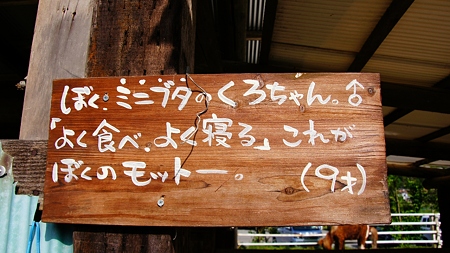 ぼく、ミニブタのくろちゃん。♂
「よく食べ、よく寝る」これが
ぼくのモットー。 (9才)